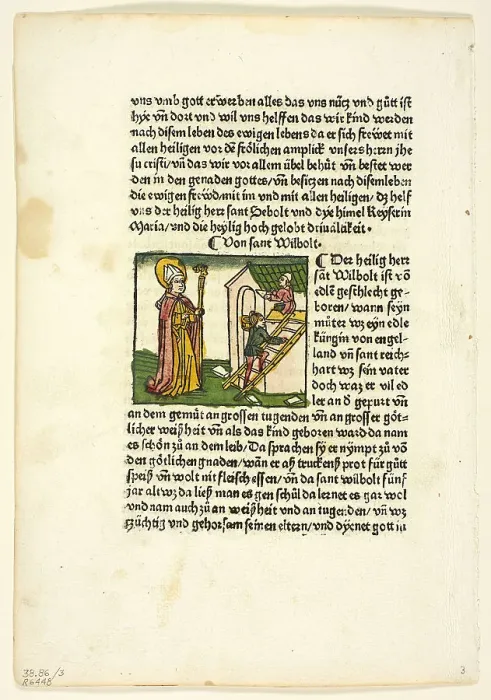 vns vmb gott erwerben alles das vns nücz vnd gütt ist
hye vñ dort vnd wil vns helffen das wir kind werden
nach disem leben des ewigen lebens da er sich frewet mit
allen heiligen vor dē frölichen amplick vnsers herrn jhe
su cristi/vñ das wir vor allem übel behüt vñ bestet wer
den in den genaden gottes/vñ besiczen nach disem leben
die ewigen frewd/mit im vnd mit allen heiligen/dz helf
vns der heilig herr sant Sebolt vnd dye himel Keyserin
Maria/vnd die heylig hoch gelobt driualikeit.
¶ Von sant Wilbolt.
¶ Der heilig herr
sāt Wilbolt ist vō
edlē geschlecht ge-
boren/wann seyn
müter wz eyn edle
küngin von engel-
land vñ sant reich-
hart wz sein vater
doch waz er vil ed
ler an d gepurt vñ
an dem gemüt an grossen tugenden vñ an grosser göt-
licher weißheit vñ als das kind geboren ward da nam
es schön zü an dem leib/Da sprachen sy er nympt zü võ
den götlichen gnaden/wañ er aß truckenß prot für gütt
speiß vñ wolt nit fleisch essen/vñ da sant wilbolt fünf
jar alt wz da ließ man es gen schül da lernet es gar wol
vnd nam auch zü an weißheit vnd an tugenden/vñ wz
züchtig vnd gehorsam seinen eltern/vnd dyenet gott in
38.86/3
R6448
3